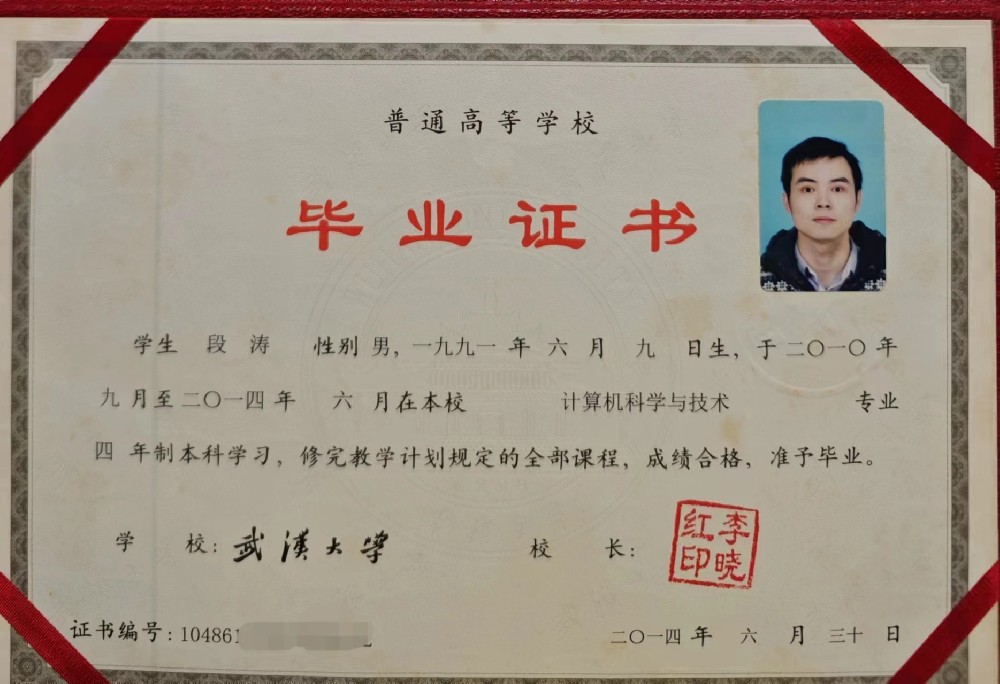 普通高等学校
毕业证书
学生 段涛 性别 男，一九九一 年 六 月 九 日生，于 二〇一〇 年
九 月至 二〇一四 年 六 月在本校 计算机科学与技术 专业
四 年制本科学习，修完教学计划规定的全部课程，成绩合格，准予毕业。
学 校：武漢大学
校 长：
李晓红印
证书编号：104861
二〇一四 年 六 月 三十 日